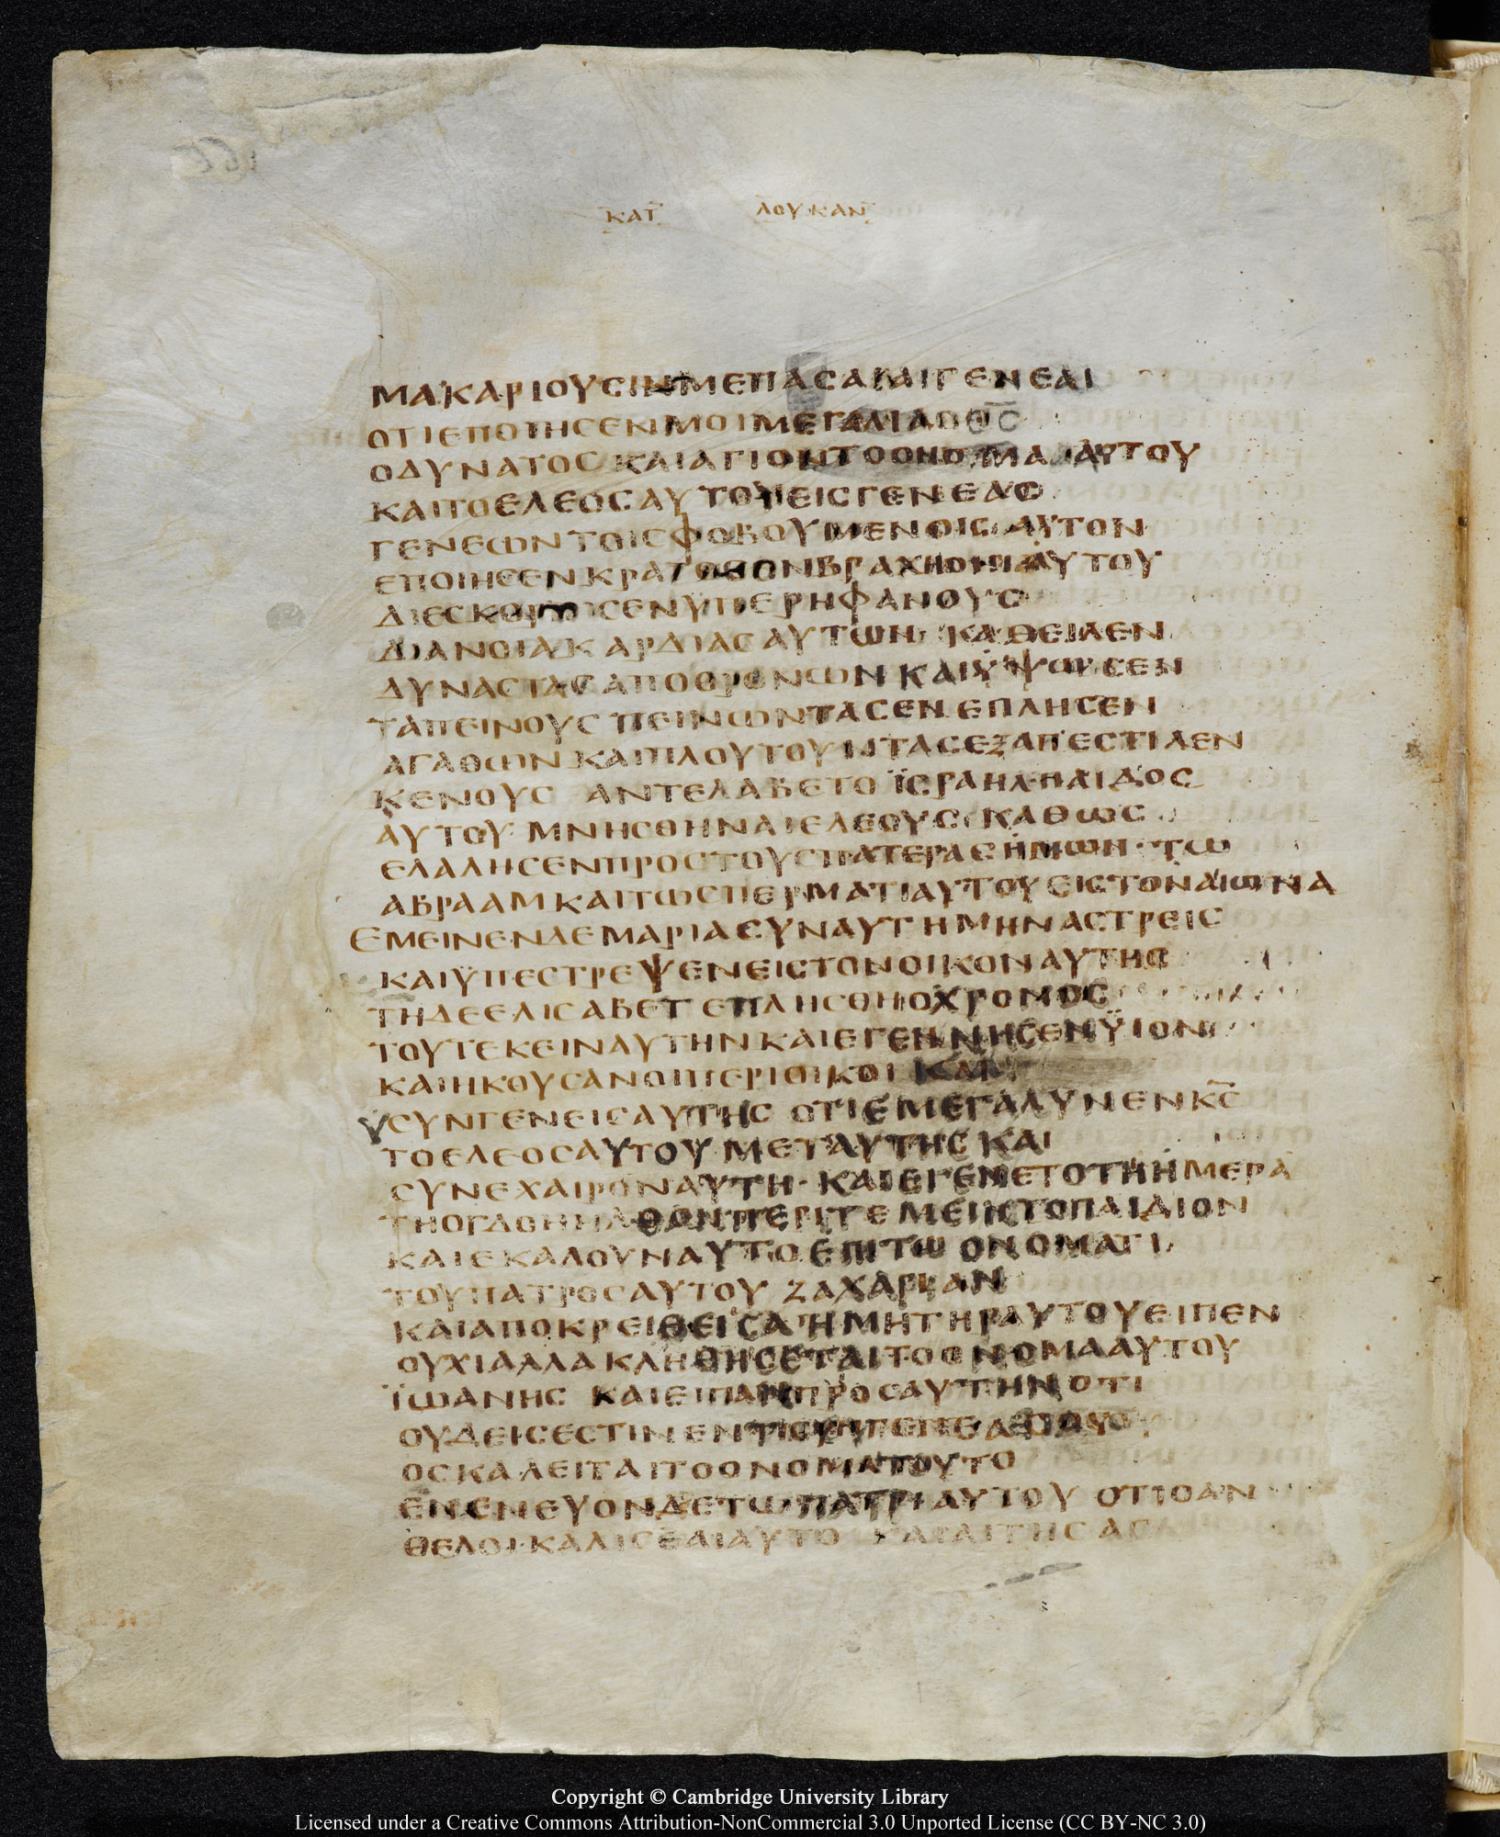 ΚΑΤ ΛΟΥΚΑΝ
ΜΑΚΑΡΙΟΥϹΙΝΜΕΠΑϹΑΙΑΙΓΕΝΕΑΙ
ΟΤΙΕΠΟΙΗϹΕΝΜΟΙΜΕΓΑΛΙΑΟΘ̅Ϲ̅
ΟΔΥΝΑΤΟϹΚΑΙΑΓΙΟΝΤΟΟΝΟΜΑΑΥΤΟΥ
ΚΑΙΤΟΕΛΕΟϹΑΥΤΟΥΕΙϹΓΕΝΕΑϹ
ΓΕΝΕΩΝΤΟΙϹΦΟΒΟΥΜΕΝΟΙϹΑΥΤΟΝ
ΕΠΟΙΗϹΕΝΚΡΑΤΟϹΕΝΒΡΑΧΙΟΝΙΑΥΤΟΥ
ΔΙΕϹΚΟΡΠΙϹΕΝΥΠΕΡΗΦΑΝΟΥϹ
ΔΙΑΝΟΙΑΚΑΡΔΙΑϹΑΥΤΩΝ ΚΑΘΕΙΛΕΝ
ΔΥΝΑϹΤΑϹΑΠΟΘΡΟΝΩΝΚΑΙΥΨΩϹΕΝ
ΤΑΠΕΙΝΟΥϹ ΠΕΙΝΩΝΤΑϹΕΝΕΠΛΗϹΕΝ
ΑΓΑΘΩΝΚΑΙΠΛΟΥΤΟΥΝΤΑϹΕΞΑΠΕϹΤΙΛΕΝ
ΚΕΝΟΥϹ ΑΝΤΕΛΑΒΕΤΟΪϹΡΑΗΛΠΑΙΔΟϹ
ΑΥΤΟΥ ΜΝΗϹΘΗΝΑΙΕΛΕΟΥϹ ΚΑΘΩϹ
ΕΛΑΛΗϹΕΝΠΡΟϹΤΟΥϹΠΑΤΕΡΑϹΗΜΩΝ ΤΩ
ΑΒΡΑΑΜΚΑΙΤΩϹΠΕΡΜΑΤΙΑΥΤΟΥΕΙϹΤΟΝΑΙΩΝΑ
ΕΜΕΙΝΕΝΔΕΜΑΡΙΑϹΥΝΑΥΤΗΜΗΝΑϹΤΡΕΙϹ
ΚΑΙΫΠΕϹΤΡΕΨΕΝΕΙϹΤΟΝΟΙΚΟΝΑΥΤΗϹ
ΤΗΔΕΕΛΙϹΑΒΕΤΕΠΛΗϹΘΗΟΧΡΟΝΟϹ
ΤΟΥΤΕΚΕΙΝΑΥΤΗΝΚΑΙΕΓΕΝΝΗϹΕΝΫΙΟΝ
ΚΑΙΗΚΟΥϹΑΝΟΙΠΕΡΙΟΙΚΟΙΚΑΙ
ϹΥΝΓΕΝΕΙϹΑΥΤΗϹ ΟΤΙΕΜΕΓΑΛΥΝΕΝΚ̅Ϲ̅
ΤΟΕΛΕΟϹΑΥΤΟΥΜΕΤΑΥΤΗϹΚΑΙ
ϹΥΝΕΧΑΙΡΟΝΑΥΤΗ ΚΑΙΕΓΕΝΕΤΟΤΗΗΜΕΡΑ
ΤΗΟΓΔΟΗΗΛΘΟΝΠΕΡΙΤΕΜΕΙΝΤΟΠΑΙΔΙΟΝ
ΚΑΙΕΚΑΛΟΥΝΑΥΤΟΕΠΙΤΩΟΝΟΜΑΤΙ
ΤΟΥΠΑΤΡΟϹΑΥΤΟΥ ΖΑΧΑΡΙΑΝ
ΚΑΙΑΠΟΚΡΕΙΘΕΙϹΑΗΜΗΤΗΡΑΥΤΟΥΕΙΠΕΝ
ΟΥΧΙΑΛΛΑΚΛΗΘΗϹΕΤΑΙΤΟΟΝΟΜΑΑΥΤΟΥ
ΪΩΑΝΗϹ ΚΑΙΕΙΠΑΝΠΡΟϹΑΥΤΗΝΟΤΙ
ΟΥΔΕΙϹΕϹΤΙΝΕΝ
ΟϹΚΑΛΕΙΤΑΙΤΟΟΝΟΜΑΤΟΥΤΟ
ΕΝΕΝΕΥΟΝΔΕΤΩΠΑΤΡΙΑΥΤΟΥ ΟΤΙΟΑΝ
ΘΕΛΟΙΚΑΛΙϹΕΑΙΑΥΤΟ
Copyright © Cambridge University Library
Licensed under a Creative Commons Attribution-NonCommercial 3.0 Unported License (CC BY-NC 3.0)